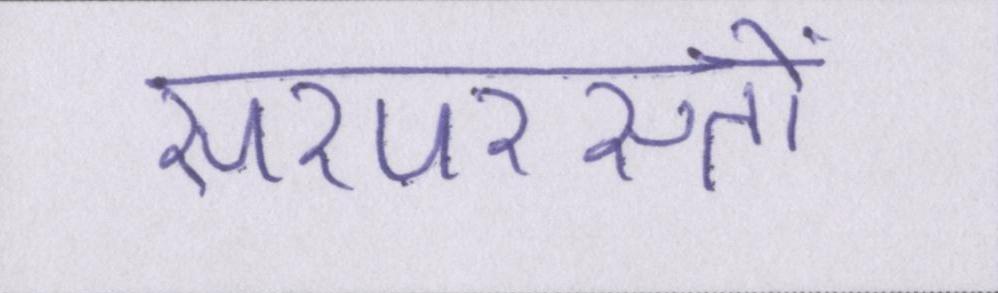 सरपरस्तों